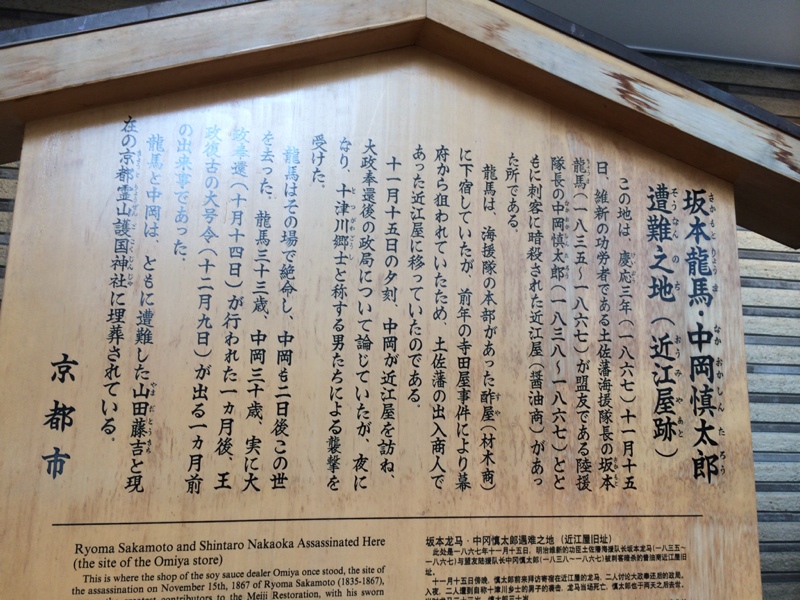 坂本龍馬・中岡慎太郎
遭難之地（近江屋跡）
この地は、慶応三年（一八六七）十一月十五
日、維新の功労者である土佐藩海援隊長の坂本
龍馬（一八三五～一八六七）が盟友である陸援
隊長の中岡慎太郎（一八三八～一八六七）とと
もに刺客に暗殺された近江屋（醤油商）があっ
た所である。
龍馬は、海援隊の本部があった酢屋（材木商）
に下宿していたが、前年の寺田屋事件により幕
府から狙われていたため、土佐藩の出入商人で
あった近江屋に移っていたのである。
十一月十五日の夕刻、中岡が近江屋を訪ね、
大政奉還後の政局について論じていたが、夜に
なり、十津川郷士と称する男たちによる襲撃を
受けた。
龍馬はその場で絶命し、中岡も二日後この世
を去った。龍馬三十三歳、中岡三十歳、実に大
政奉還（十月十四日）が行われた一カ月後、王
政復古の大号令（十二月九日）が出る一カ月前
の出来事であった。
龍馬と中岡は、ともに遭難した山田藤吉と現
在の京都霊山護国神社に埋葬されている。
京都市
Ryoma Sakamoto and Shintaro Nakaoka Assassinated Here
(the site of the Omiya store)
This is where the shop of the soy sauce dealer Omiya once stood, the site of
the assassination on November 15th, 1867 of Ryoma Sakamoto (1835-1867),
greatest contributors to the Meiji Restoration, with his sworn
坂本龙马・中冈慎太郎遇难之地（近江屋旧址）
此处是一八六七年十一月十五日，明治维新的功臣土佐藩海援队长坂本龙马（一八三五～
一八六七）与盟友陆援队长中冈慎太郎（一八三八～一八六七）被刺客暗杀的酱油商近江屋旧
址。
十一月十五日傍晚，慎太郎前来拜访寄宿在近江屋的龙马，二人讨论大政奉还后的政局。
入夜，二人遭到自称十津川乡士的男子的袭击，龙马当场死亡，慎太郎也于两天之后去世，